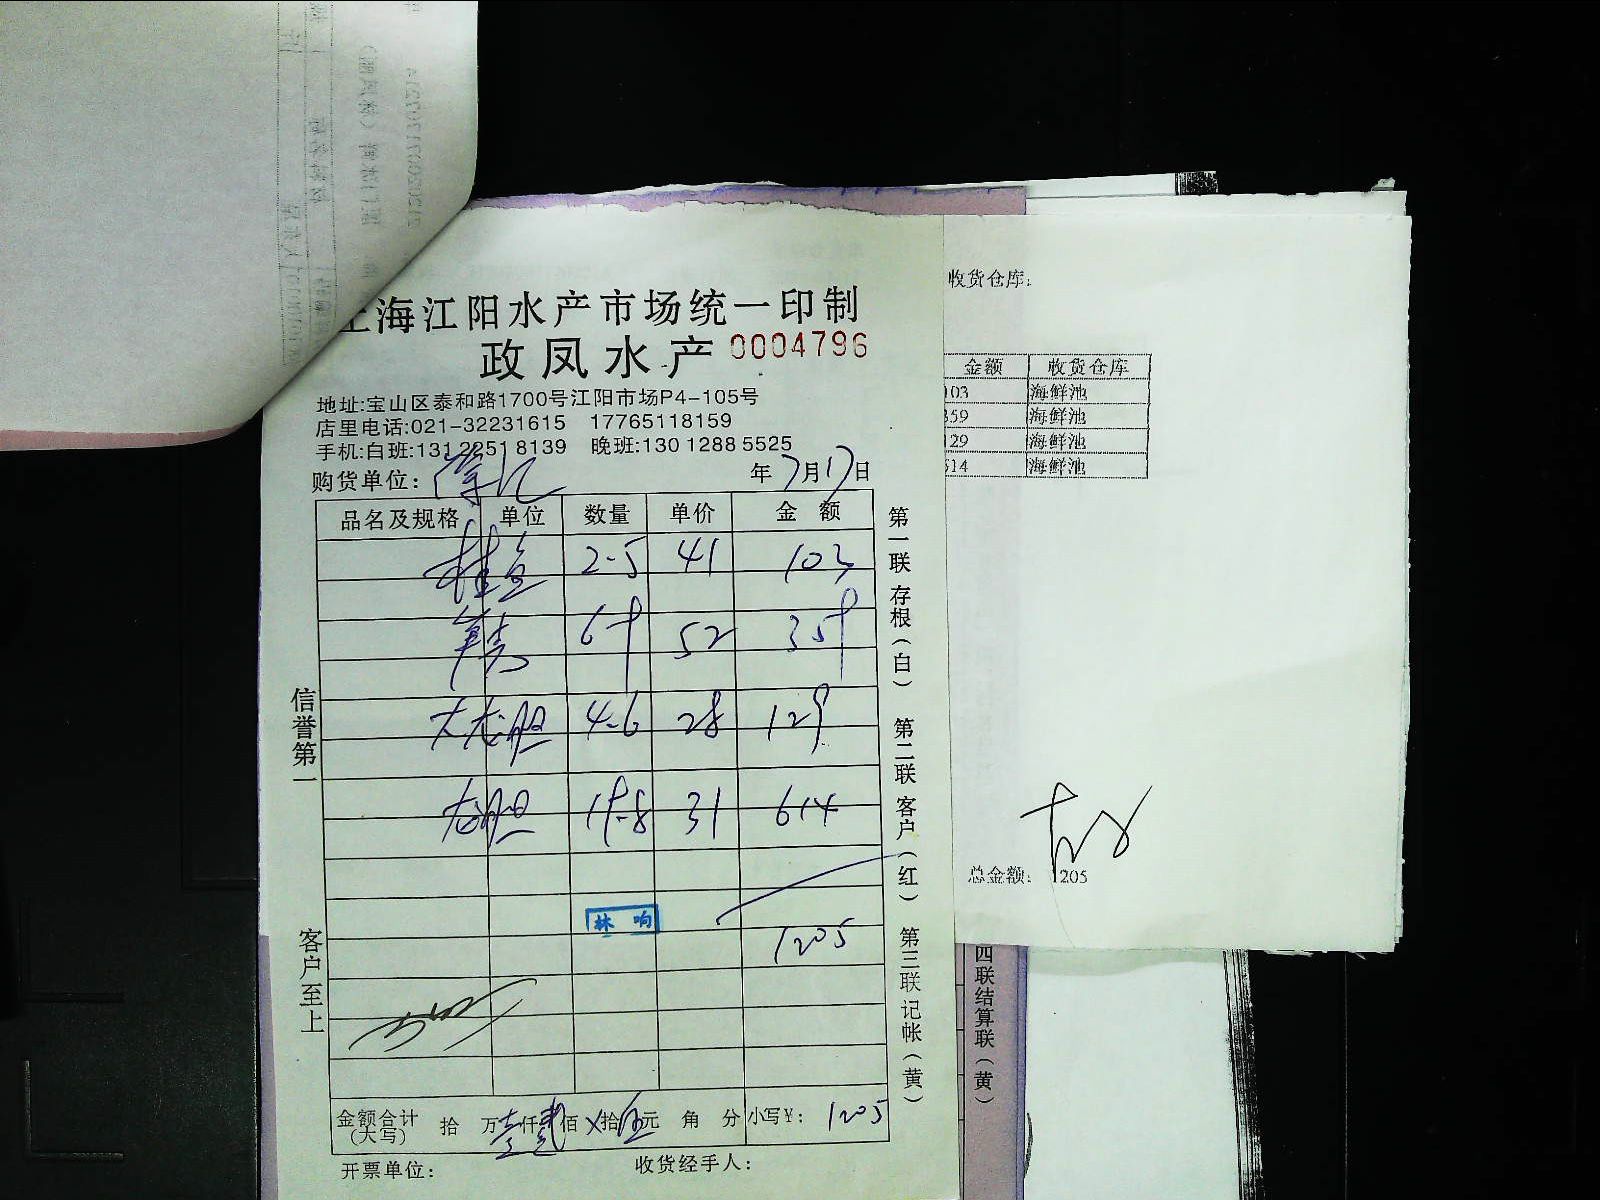 上海江阳水产市场统一印制
政凤水产 0004796
地址:宝山区泰和路1700号江阳市场P4-105号
店里电话:021-32231615 17765118159
手机:白班:131 2251 8139 晚班:130 1288 5525
购货单位: 年7月17日
品名及规格 单位 数量 单价 金额
桂鱼 2-5 41 103
69 52 359
大龙胆 4-6 28 129
龙胆 19-8 31 614
林响
1205
金额合计(大写) 拾 万壹仟贰佰X拾伍元 角 分 小写¥: 1205
开票单位: 收货经手人:
信誉第一
客户至上
第一联存根(白) 第二联客户(红) 第三联记帐(黄)
四联结算联(黄)
收货仓库:
金额 收货仓库
103 海鲜池
359 海鲜池
129 海鲜池
614 海鲜池
总金额: 1205